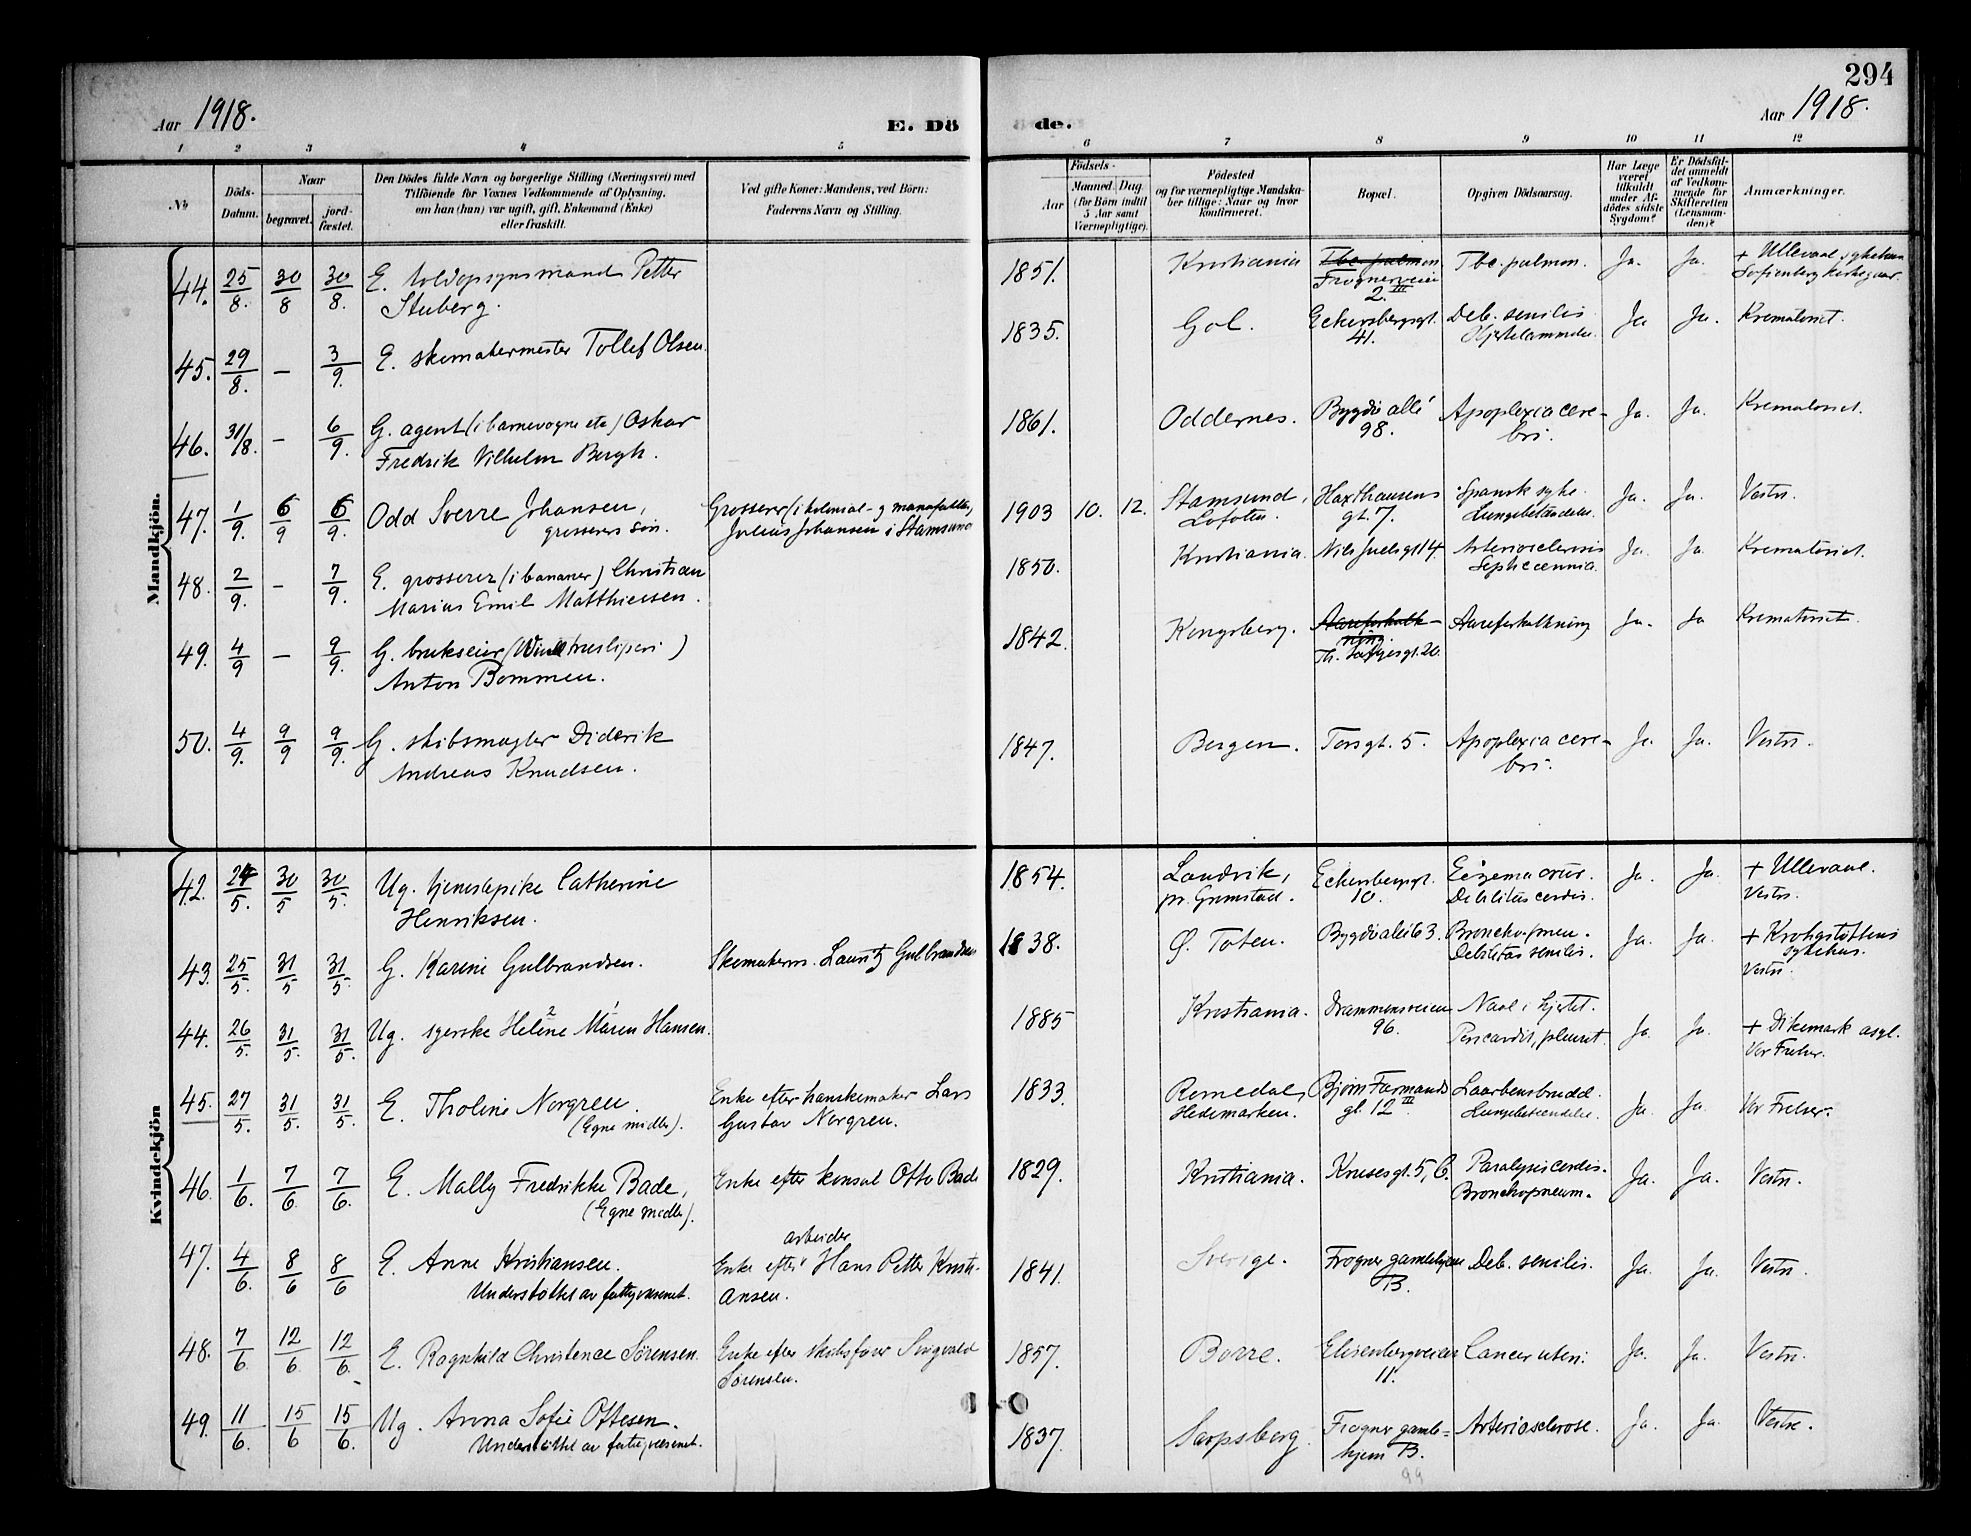 294
Aar 1918.
E. Dö
de.
Aar 1918.
1 2 3 4 5 6 7 8 9 10 11 12
No
Döds-
Datum.
Naar
begravet.
jord-
fæstet.
Den Dödes fulde Navn og borgerlige Stilling (Næringsvei) med
Tilföiende for Voxnes Vedkommende af Oplysning,
om han (hun) var ugift, gift, Enkemand (Enke)
eller fraskilt.
Ved gifte Koner: Mandens, ved Börn:
Faderens Navn og Stilling.
Födsels-
Aar
Maaned
Dag
(for Börn indtil
5 Aar samt
Værnepligtige).
Födested
og for værnepligtige Mandska-
ber tillige: Naar og hvor
Konfirmeret.
Bopæl.
Opgiven Dödsaarsag.
Har Læge
været
tilkaldt
under Af-
dödes sidste
Sygdom?
Er Dödsfal-
det anmeldt
af Vedkom-
mende for
Skifteretten
(Lensman-
den)?
Anmærkninger.
Mandkjön.
44. 25/8. 30/8 30/8. E. toldopsynsmand Petter
Stuberg.
1851. Kristiania Tbc. pulmon
Frognerveien
2. III
Tbc. pulmon. Ja. Ja. + Ullevaal sykehus
Sofienberg kirkegaar.
45. 29/8. – 3/9. E. skomakermester Tollef Olsen.
1835. Gol. Eckersbergsgt.
41.
Deb. senilis
Hjertelammelse. Ja Ja. Krematoriet.
46. 31/8. – 6/9. G. agent (i barnevogne etc) Oskar
Fredrik Vilhelm Bergh.
1861. Oddernes. Bygdø allé
98.
Apoplexia cere-
bri. Ja. Ja. Krematoriet.
47. 1/9. 6/9 6/9. Odd Sverre Johansen,
grosserers søn.
Grosserer (i kolonial- og manufaktur)
Julius Johansen i Stamsund
1903 10. 12. Stamsund,
Lofoten. Haxthausens
gt. 7.
Spansk syke.
Lungebetændelse. Ja. Ja. Vestre.
48. 2/9. – 7/9. E. grosserer (i bananer) Christian
Marius Emil Matthiessen.
1850. Kristiania. Nils Juelsgt 14. Arteriosclerosis
Septicæmia. Ja. Ja. Krematoriet.
49. 4/9 – 9/9. G. brukseier ( )
Anton Bommen.
1842. Kongsberg. Aareforkalk-
ning.
Th. gt. 20.
Aareforkalkning Ja. Ja Krematoriet.
50. 4/9. 9/9 9/9. G. skibsmægler Diderik
Andreas Knudsen.
1847. Bergen. Torsgt. 5. Apoplexia cere-
bri. Ja. Ja. Vestre.
Kvindekjön
42. 24/5. 30/5 30/5. Ug. tjenestepike Catherine
Henriksen.
1854. Landvik,
pr. Grimstad. Eckersbergsgt.
10.
Eczema crur.
Debilitas cordis. Ja. Ja. + Ullevaal.
Vestre.
43. 25/5. 31/5 31/5. G. Karine Gulbrandsen. Skomakerm. Lauritz Gulbrandsen
1838. Ø. Toten. Bygdø allé 63. Broncho-pneu.
Debilitas senilis. Ja. Ja. + Krohgstøttens
sykehus.
Vestre.
44. 26/5. 31/5. 31/5. Ug. syerske Helene Maren Hansen.
1885 Kristiania. Drammensveien
96.
Naal i hjertet.
Pericardit, pleurit. Ja Ja. + Dikemark asyl.
Vor Frelser.
45. 27/5. 31/5. 31/5. E. Tholine Norgren.
(Egne midler).
Enke efter hanskemaker Lars
Gustav Norgren.
1833. Romedal,
Hedemarken. Bjørn Farmands
gt. 12 III
Laarbensbrudd.
Lungebetændelse. Ja. Ja. Vor Frelser.
46. 1/6. 7/6. 7/6. E. Mally Fredrikke Bade,
(Egne midler).
Enke efter konsul Otto Bade
1829. Kristiania. Krusesgt. 5, C. Paralysis cordis.
Bronchopneum. Ja. Ja. Vestre.
47. 4/6. 8/6 8/6 E. Anne Kristiansen.
Understøttet av fattigvæsenet.
arbeider
Enke efter Hans Petter Kristi-
ansen.
1841. Sverige. Frogner gamlehjem
B.
Deb. senilis. Ja. Ja. Vestre.
48. 7/6. 12/6 12/6. E. Ragnhild Christence Sørensen. Enke efter skibsfører Sivgvald
Sørensen.
1857. Borre. Elisenbergveien
11.
Cancer uteri. Ja. Ja. Vestre.
49. 11/6. 15/6 15/6. Ug. Anna Sofie Ottesen.
Understøttet av fattigvæsenet.
1837. Sarpsberg. Frogner gamle-
hjem B.
Arteriosclerose. Ja. Ja. Vestre.
99